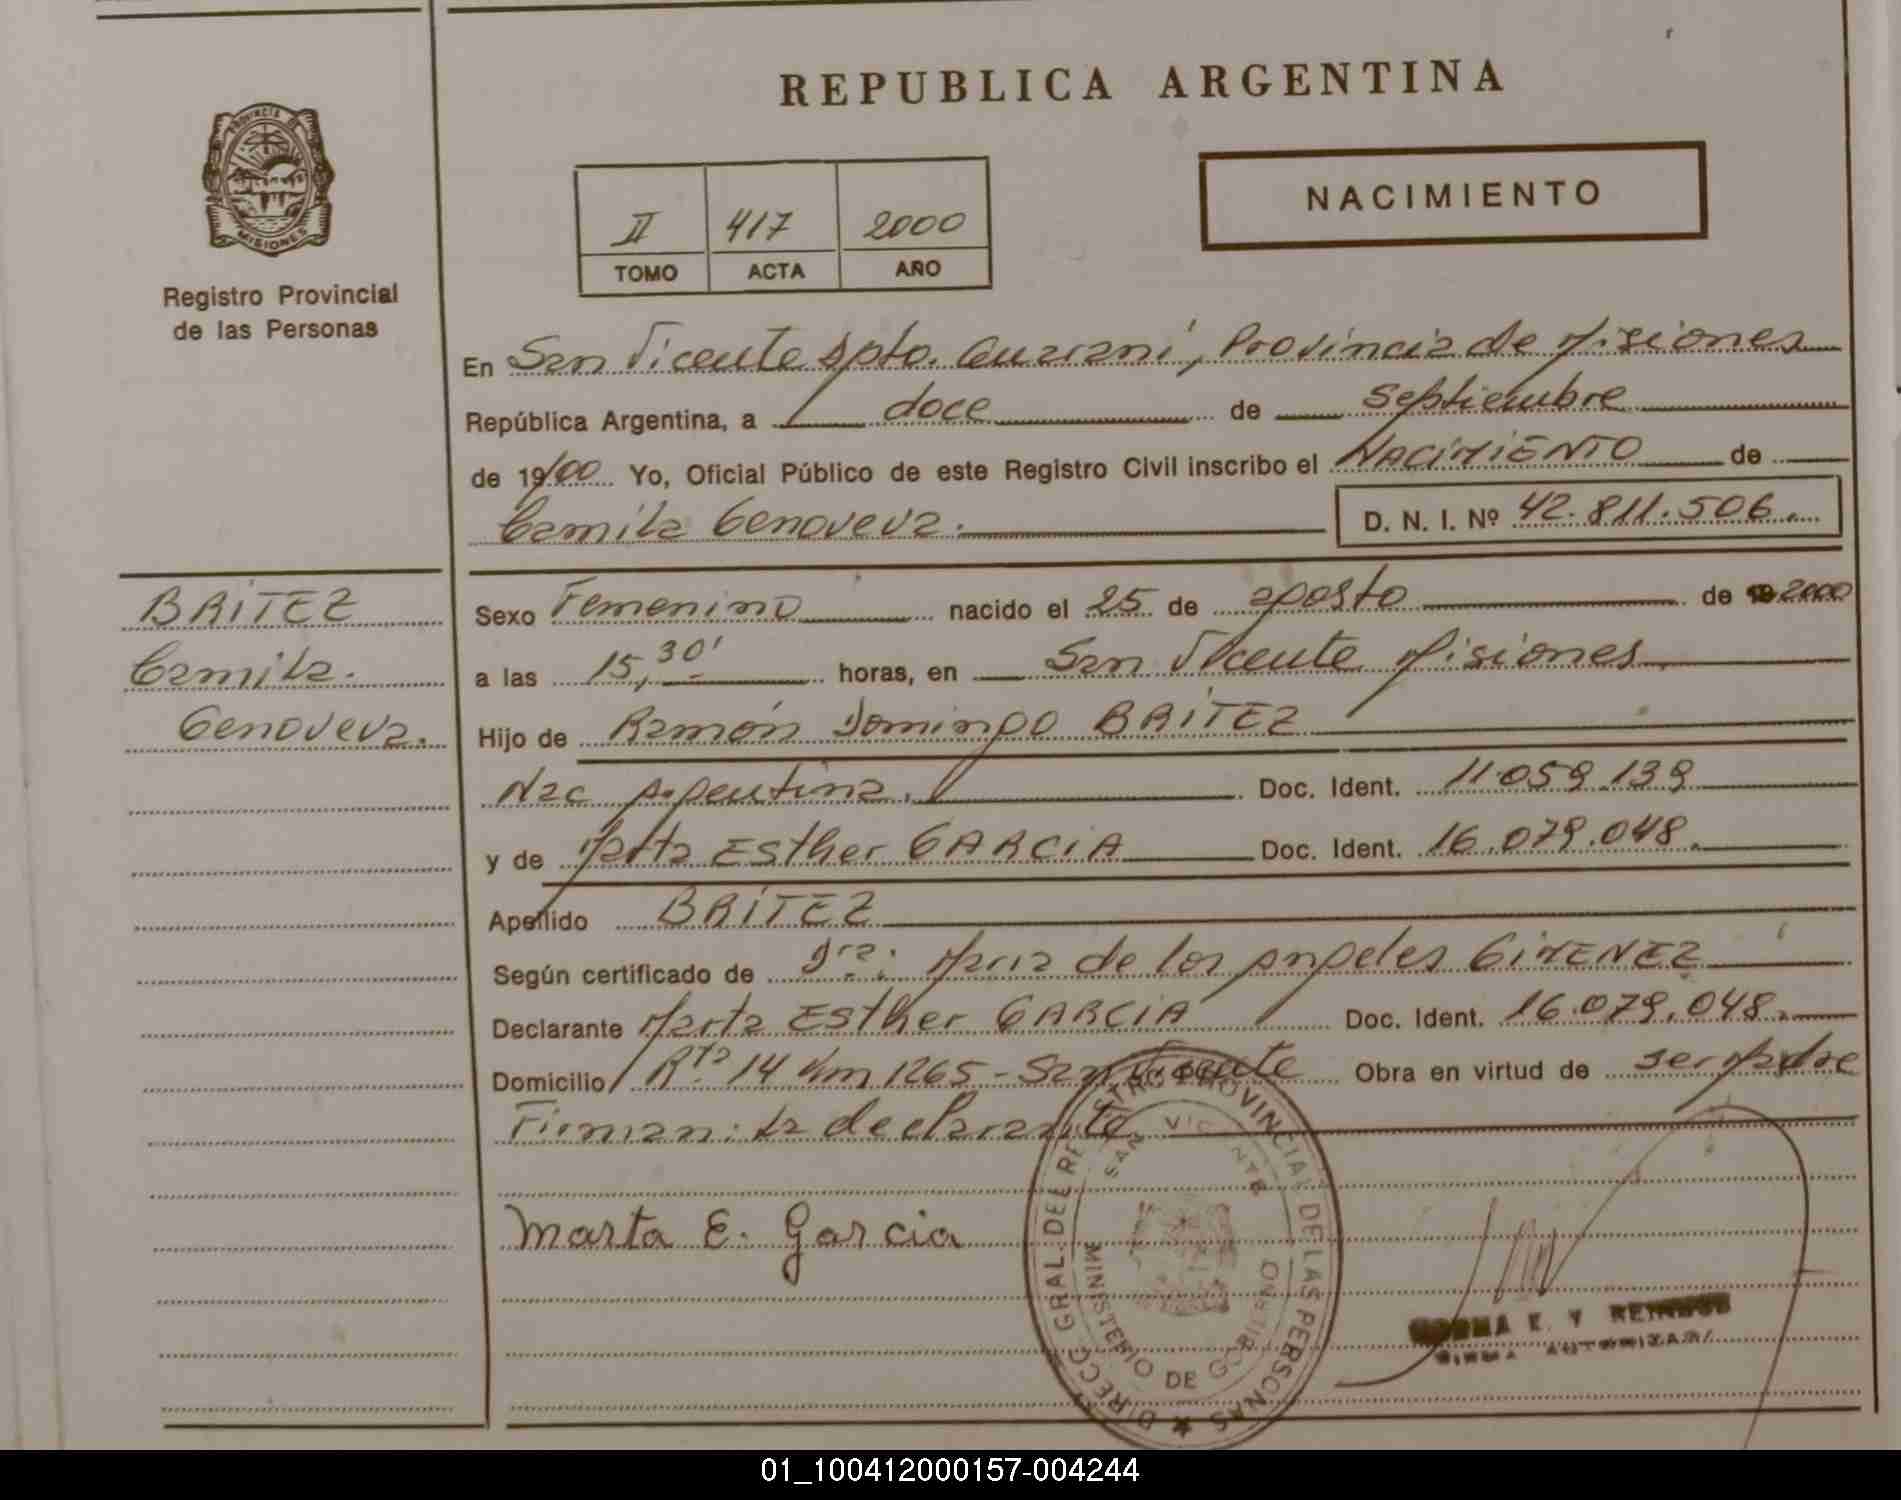 REPUBLICA ARGENTINA
PROVINCIA DE
MISIONES
Registro Provincial
de las Personas
NACIMIENTO
II 417 2000
TOMO ACTA AÑO
En San Vicente Dpto. Guaraní, Provincia de Misiones
República Argentina, a doce de Septiembre
de 19/00 Yo, Oficial Público de este Registro Civil inscribo el NACIMIENTO de
Camila Genoveva. D. N. I. Nº 42.811.506.
BRITEZ
Camila.
Genoveva.
Sexo Femenino nacido el 25 de agosto de 2000
a las 15,30' horas, en San Vicente Misiones
Hijo de Ramón Domingo BRITEZ
Nac Argentina. Doc. Ident. 11.059.139
y de Marta Esther GARCIA Doc. Ident. 16.079.048.
Apellido BRITEZ
Según certificado de Dra: Maria de los Angeles GIMENEZ
Declarante Marta Esther GARCIA Doc. Ident. 16.079.048.
Domicilio Rta 14 Km 1265 - San Vicente Obra en virtud de ser Madre
Firman: la declarante
Marta E. Garcia
DIRECC GRAL. DEL REGISTRO PROVINCIAL DE LAS PERSONAS
SAN VICENTE
MINISTERIO DE GOBIERNO
NORMA E. V
FIRMA AUTORIZADA
01_100412000157-004244